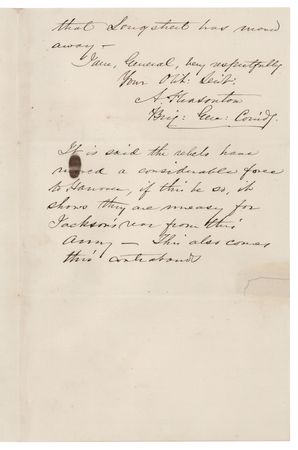 that Longstreet has moved
away —
I am, General, very respectfully
Your Obt: Servt:
A. Pleasonton
Brig: Gen: Comd'g.
It is said the rebels have
moved a considerable force
to, if this be so, it
shows they are uneasy for
Jackson's rear from this
Army — This also comes
thro' contrabands